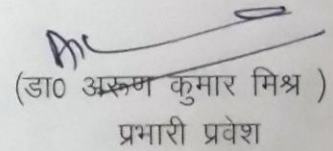 (डा० अरूण कुमार मिश्र )
प्रभारी प्रवेश